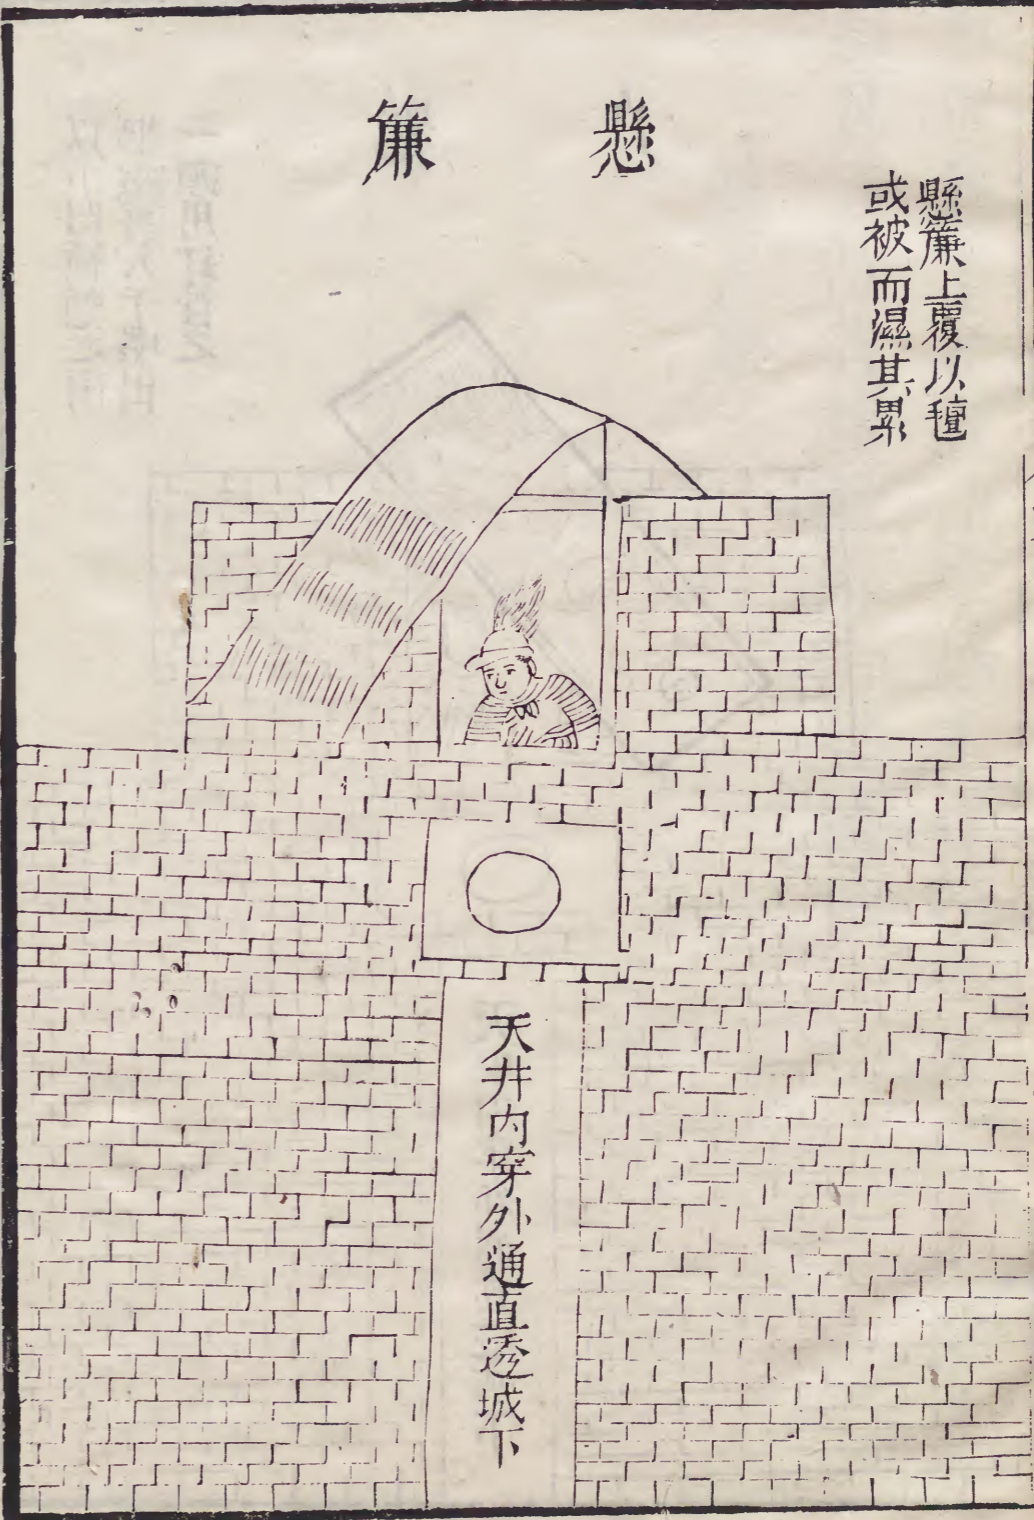 懸簾
懸簾上覆以氊
或被而濕其累
天井內穿外通直透城下